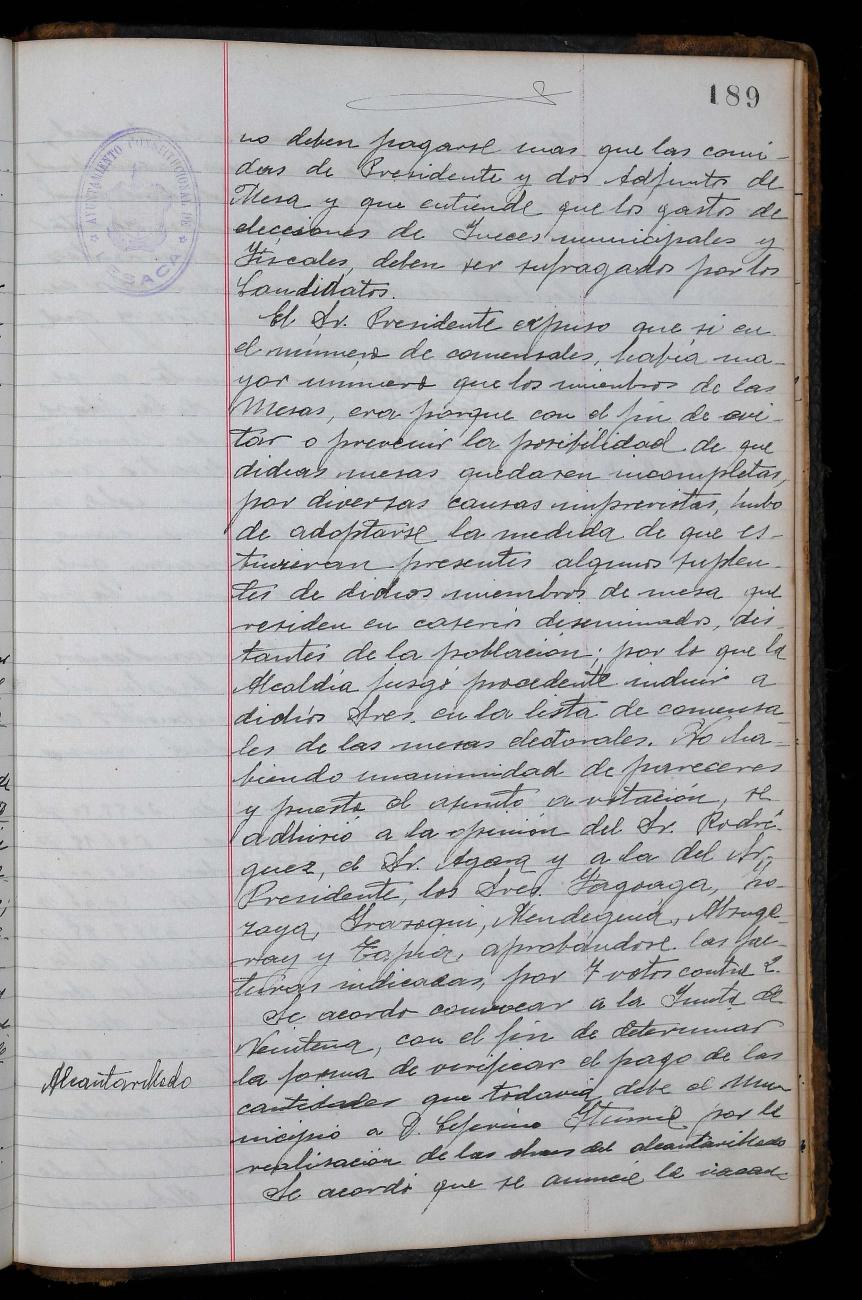 189
AYUNTAMIENTO CONSTITUCIONAL DE LESACA
no deben pagarse mas que las comi-
das de Presidente y dos Adjuntos de
Mesa y que entiende que los gastos de
elecciones de Jueces municipales y
Fiscales, deben ser sufragados por los
Candidatos.
El Sr. Presidente expuso que si en
el número de comensales, había ma-
yor número que los miembros de las
Mesas, era porque con el fin de evi-
tar o prevenir la posibilidad de que
dichas mesas quedaren incompletas,
por diversas causas imprevistas, hubo
de adoptarse la medida de que es-
tuvieran presentes algunos suplen-
tes de dichos miembros de mesa que
residen en caserios diseminados, dis-
tantes de la población; por lo que la
Alcaldía juzgó procedente incluir a
dichos Sres. en la lista de comensa-
les de las mesas electorales. No ha-
biendo unanimidad de pareceres
y puesto el asunto a votación, se
adhirió a la opinión del Sr. Rodrí-
guez, el Sr. Agara y a la del Sr.
Presidente, los Sres. Fagoaga, Yo-
zaya, Irazoqui, Mendeguia, Alzuge-
ray y Tapia, aprobándose las fac-
turas indicadas, por 7 votos contra 2.
Se acordo convocar a la Junta de
Veintena, con el fin de determinar
Alcantarillado
la forma de verificar el pago de las
cantidades que todavia debe el Mu-
nicipio a D. Ceferino por la
realización de las obras del alcantarillado
Se acordó que se anuncie la vacan-